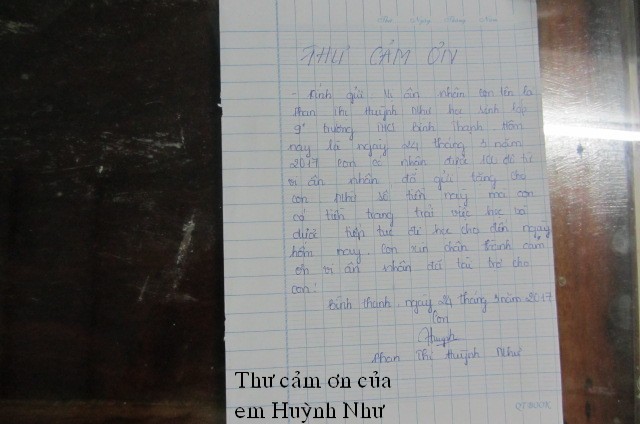 Thứ Ngày Tháng Năm
THƯ CẢM ƠN
- Kính gửi vị ân nhân con tên là
Phan Thị Huỳnh Như học sinh lớp
9 trường THCS Bình Thạnh Hôm
nay là ngày 24 tháng 3 năm
2017 con có nhận được 100 đô từ
vị ân nhân đã gửi tặng cho
con Nhờ số tiền này mà con
có tiền trang trải việc học và
được tiếp tục đi học cho đến ngày
hôm nay. Con xin chân thành cảm
ơn vị ân nhân đã tài trợ cho
con!
Bình thạnh, ngày 24 tháng 3 năm 2017
Con
Huỳnh
Phan Thị Huỳnh Như
Thư cảm ơn của
em Huỳnh Như
QT BOOK